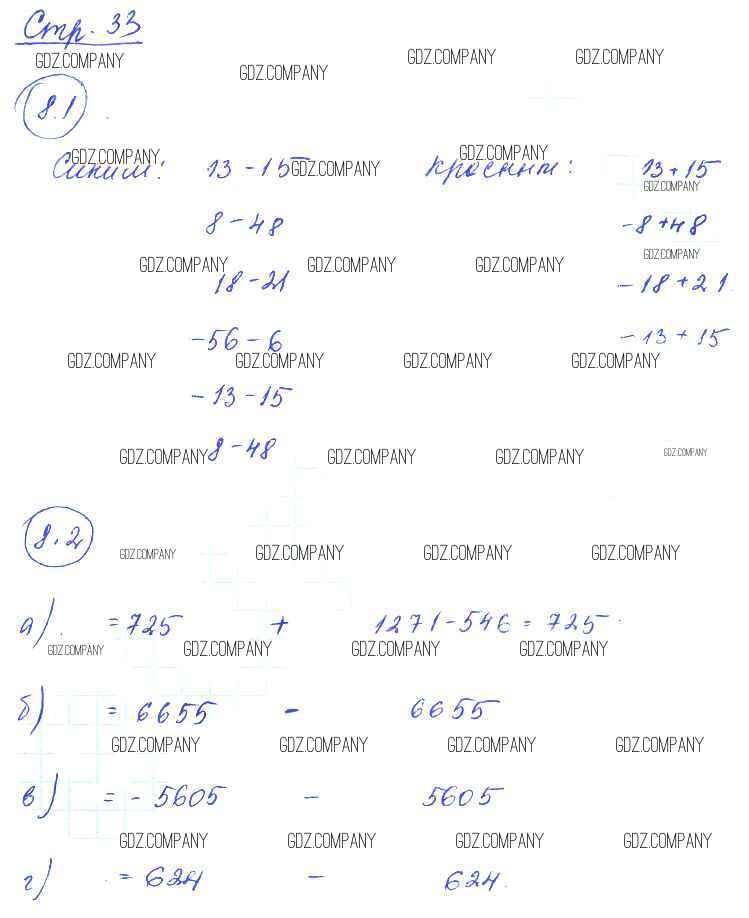 Стр. 33
GDZ.COMPANY GDZ.COMPANY GDZ.COMPANY GDZ.COMPANY
8.1
GDZ.COMPANY GDZ.COMPANY GDZ.COMPANY
Синим: 13 - 15 красным: 13 + 15
GDZ.COMPANY
8 - 48 -8 + 48
GDZ.COMPANY GDZ.COMPANY GDZ.COMPANY GDZ.COMPANY
18 - 21 - 18 + 21
-56 - 6 - 13 + 15
GDZ.COMPANY GDZ.COMPANY GDZ.COMPANY GDZ.COMPANY
- 13 - 15
8 - 48
GDZ.COMPANY GDZ.COMPANY GDZ.COMPANY GDZ.COMPANY
8.2
GDZ.COMPANY GDZ.COMPANY GDZ.COMPANY GDZ.COMPANY
а) = 725 + 1271 - 546 = 725
GDZ.COMPANY GDZ.COMPANY GDZ.COMPANY GDZ.COMPANY
б) = 6655 - 6655
GDZ.COMPANY GDZ.COMPANY GDZ.COMPANY GDZ.COMPANY
в) = - 5605 - 5605
GDZ.COMPANY GDZ.COMPANY GDZ.COMPANY GDZ.COMPANY
г) = 624 - 624.